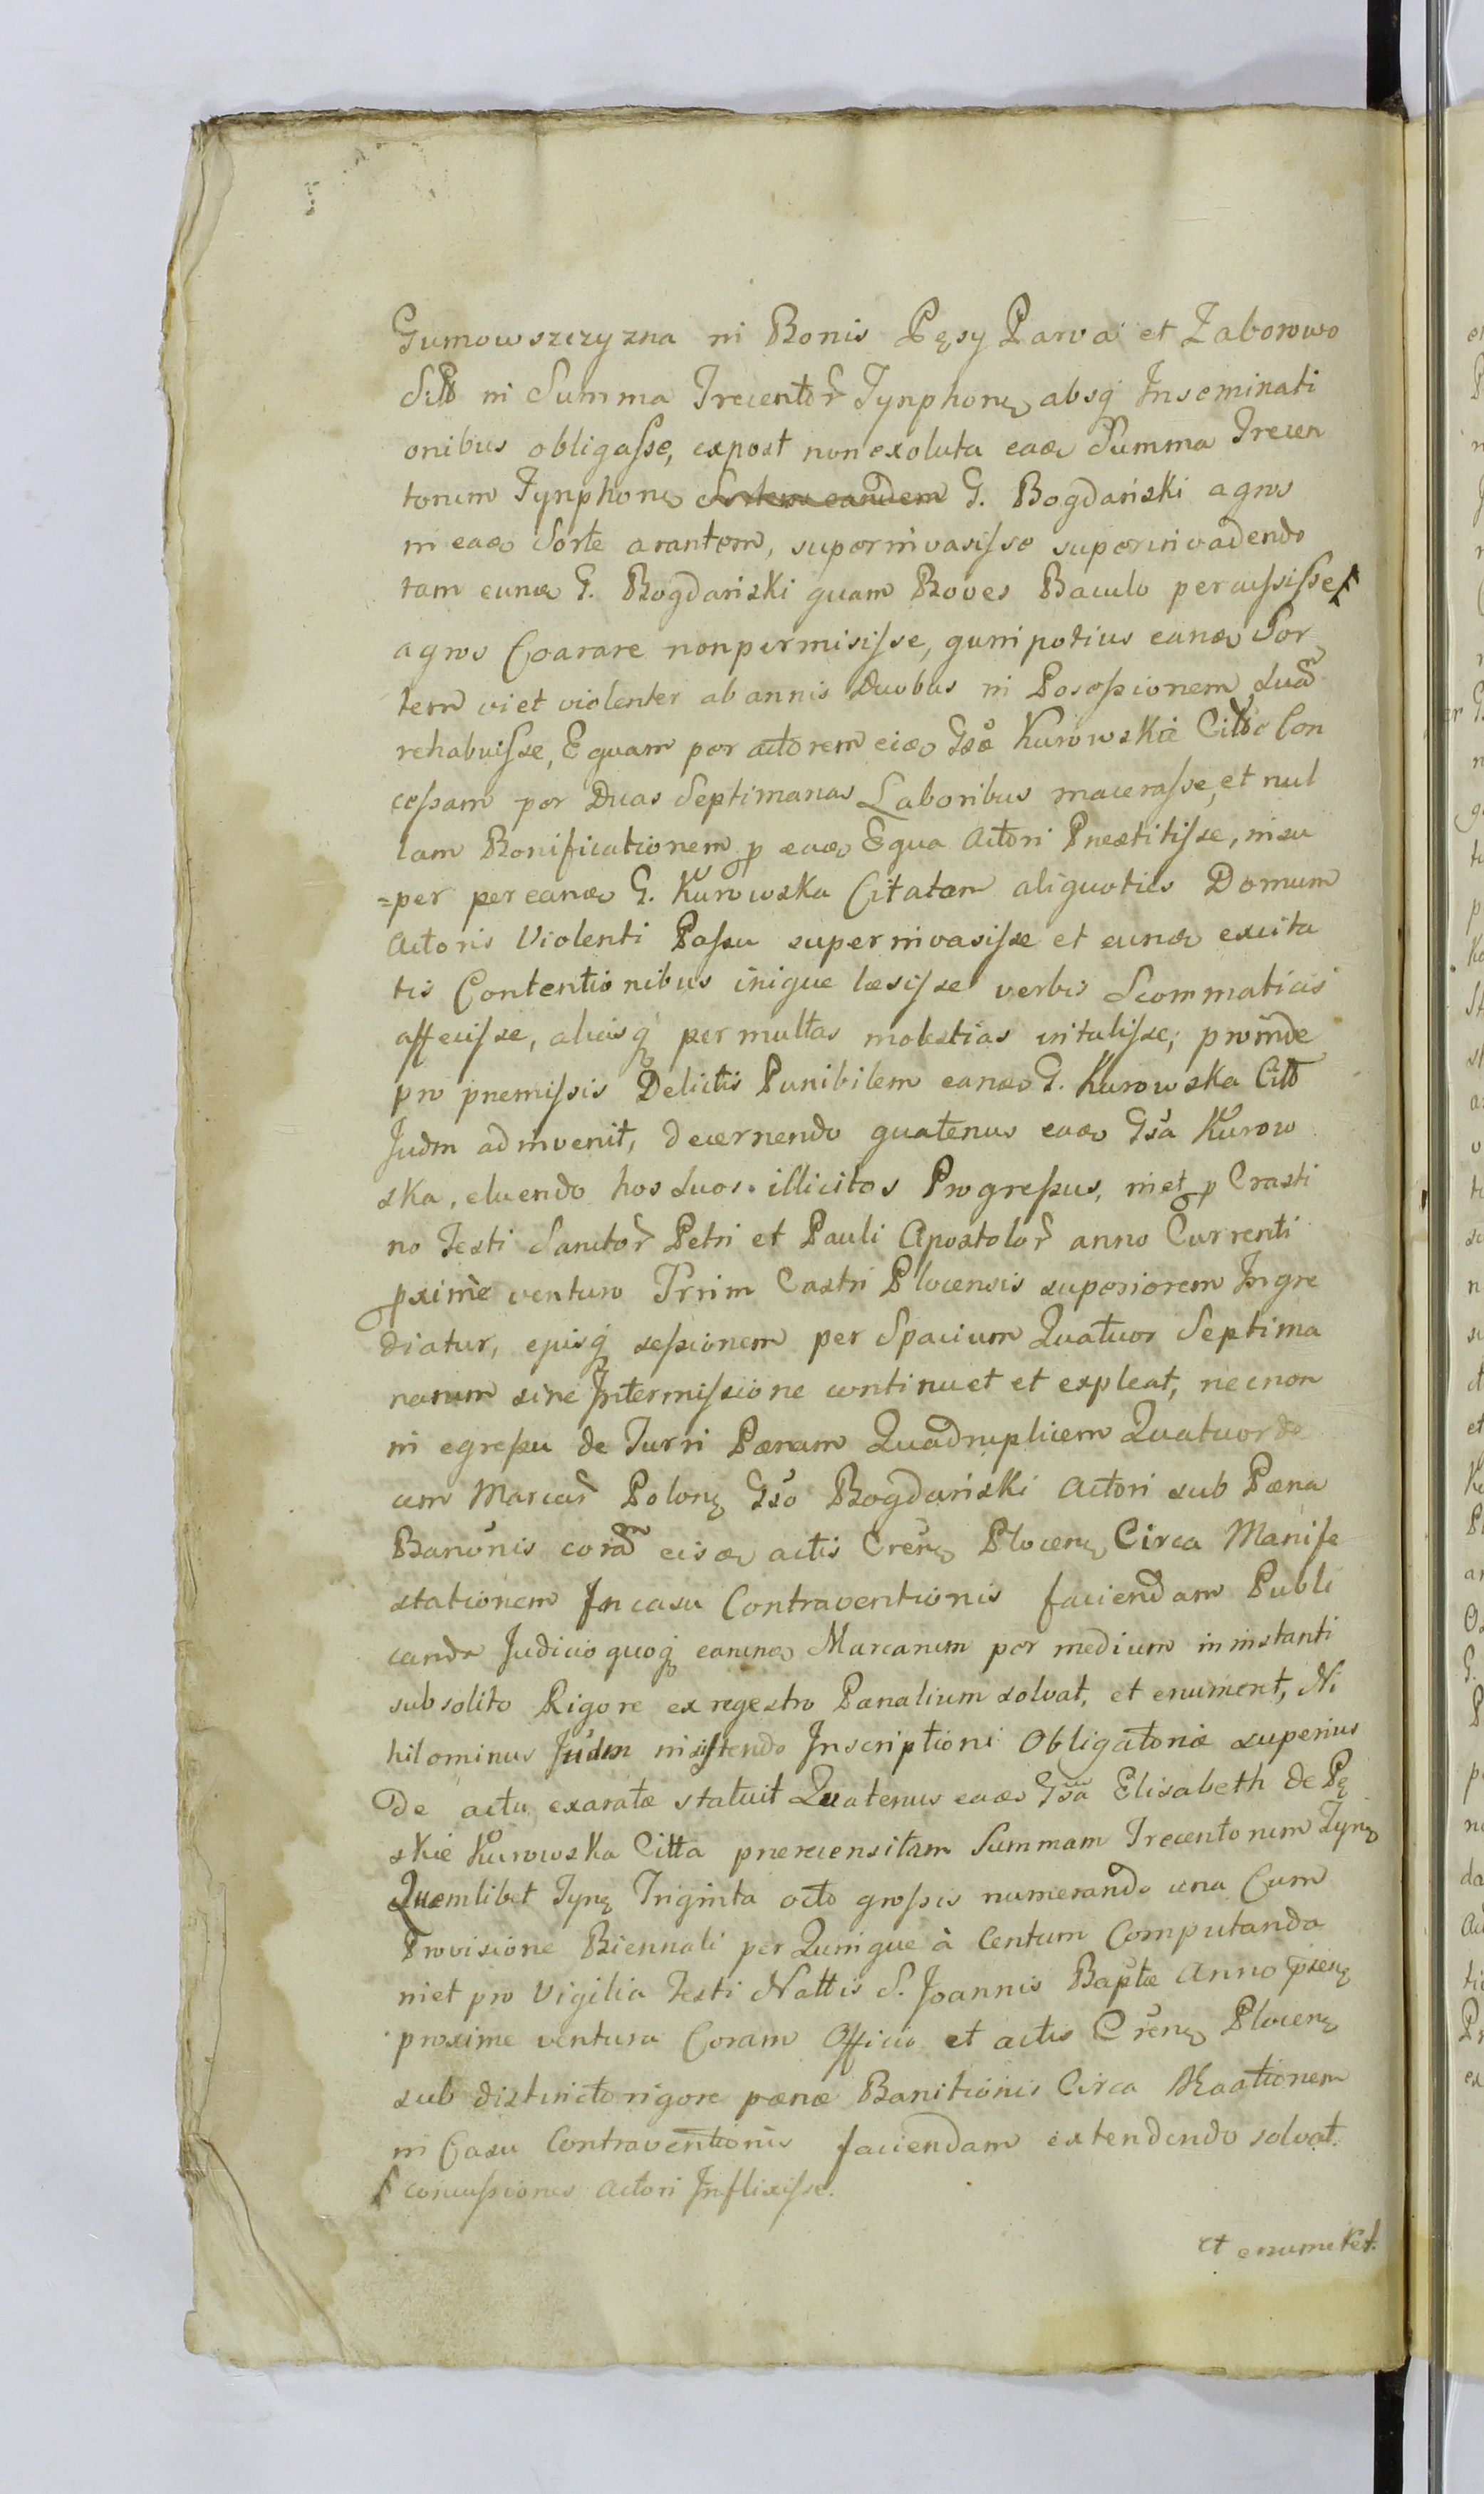 Gumowszczyzna in Bonis Pęsy Parva et Zaborowo
in Summa Trecentor Tynphon absq Inseminati
onibus obligasse, expost non exoluta eaō Summa Trecen
torum Tynphon Sortem eandem G. Bogdański agros
in eaō Sorte arantem, superinvasisse superinvadendo
tam eunō G. Bogdański quam Boves Baculo percussisse
agros Coarare non permisisse, quin potius eanō Sor
tem vi et violenter ab annis Duobus in Posessionem Suā
rehabuisse, Equam per actorem eiō Gsæ Kurowskie Con
cessam per Duas Septimanas Laboribus macerasse, et nul
lam Bonificationem p eaō Equa Actori Præstitisse, insu
=per per eanō G. Kurowska Citatam aliquoties Domum
Actoris Violenti Passu superinvasisse et eunō excita
tis Contentionibus inique læsisse verbis Scommaticis
affecisse, aliasq permultas molestias intulisse; proinde
pro premissis Delictis Punibilem eanō G. Kurowska Citt
Judm adinvenit, decernendo quatenus eaō Gsa Kurow
ska, eluendo hos suos illicitos Progressus, in et p Crasti
no Festi Sanctor Petri et Pauli Apostolor anno Currenti
pxime venturo Trrim Castri Plocensis superiorem Ingre
diatur, ejusq sessionem per Spacium Quatuor Septima
narum sine Intermissione continuet et expleat, necnon
in egressu de Turri Pœnam Quadruplicem Quatuorde
cim Marcar Polon Gso Bogdański Actori sub Pœna
Banonis corā eisō actis Cren Plocen Circa Manife
stationem In casu Contraventionis faciendam Publi
canda Judicio quoq earunō Marcarum per medium in instanti
sub solito Rigore ex regestro Pœnalium solvat, et enumeret, Ni
hilominus Judm insistendo Inscriptioni Obligatoriæ superius
De actu exaratæ statuit Quatenus eaō Gsa Elisabeth de Pę
skie Kurowska Citta prerecensitam Summam Trecentorum Tyn
Quemlibet Tyn Triginta octo grossis numerando una Cum
Provisione Biennali per Quinque à Centum Computanda
in et pro Vigilia Festi Nattis S. Joannis Baptæ Anno psen
proxime ventura Coram Officio et actis Cren Plocen
sub distincto rigore pœnæ Banitionis Circa Maationem
in Casu Contraventionis faciendam extendendo solvat.
concussiones actori Inflixisse.
et enumeret.